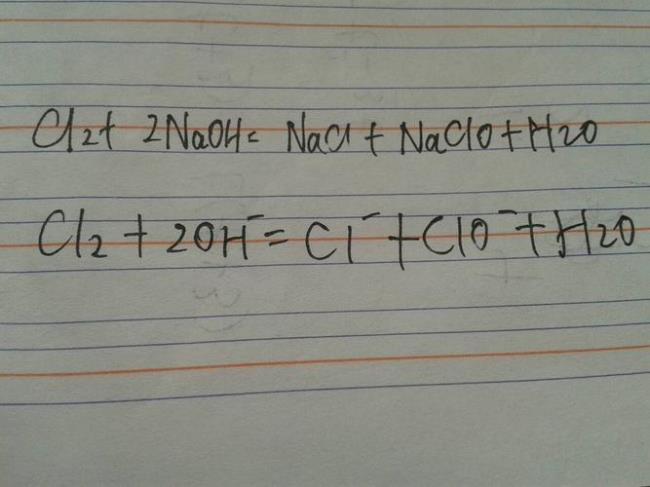 Cl2+ 2NaOH= NaCl + NaClO + H2O
Cl2 + 2OH⁻ = Cl⁻ + ClO⁻ + H2O